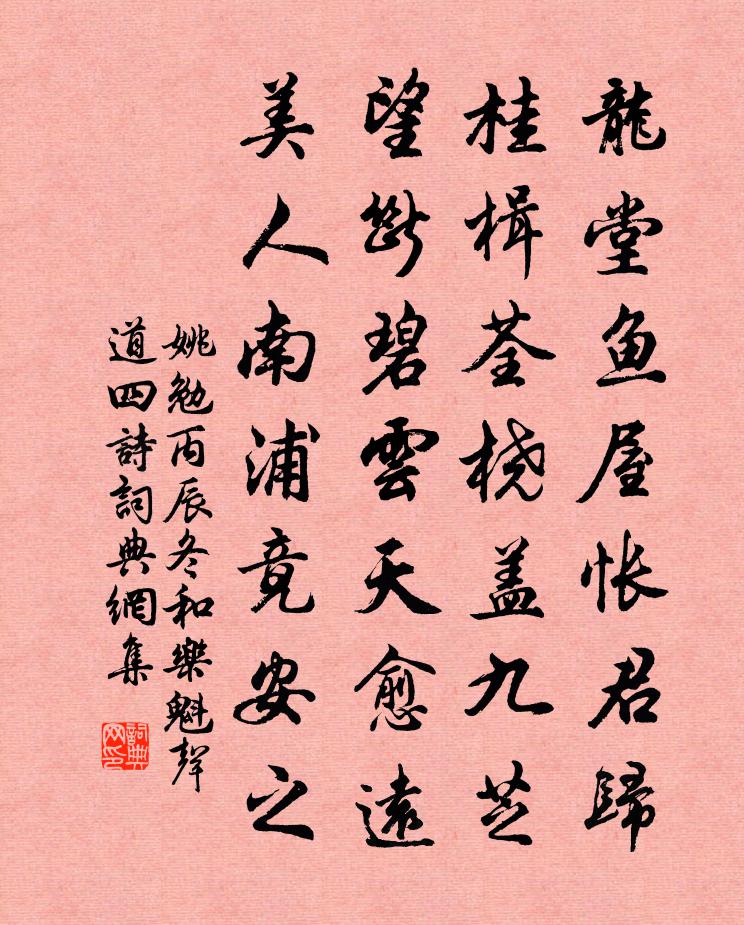 龍堂鱼屋悵君歸
桂楫荃桡盖九芝
望斷碧雲天愈遠
美人南浦竟安之
姚勉丙辰冬和樂魁聲
道四詩詞典網集
詞典网印